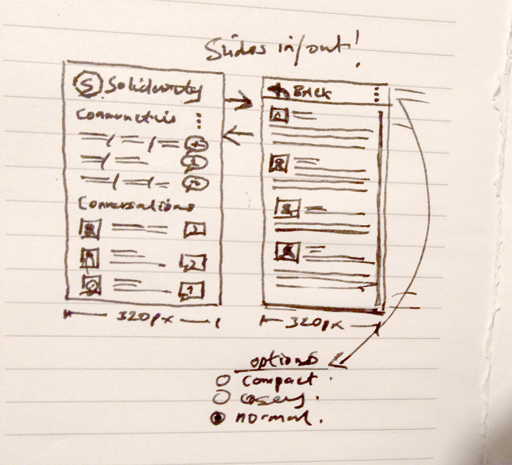 Slides in/out!
S Solidarity
Communities
Conversations
← Back
320px
320px
options
○ compact.
○ cosey.
● normal.